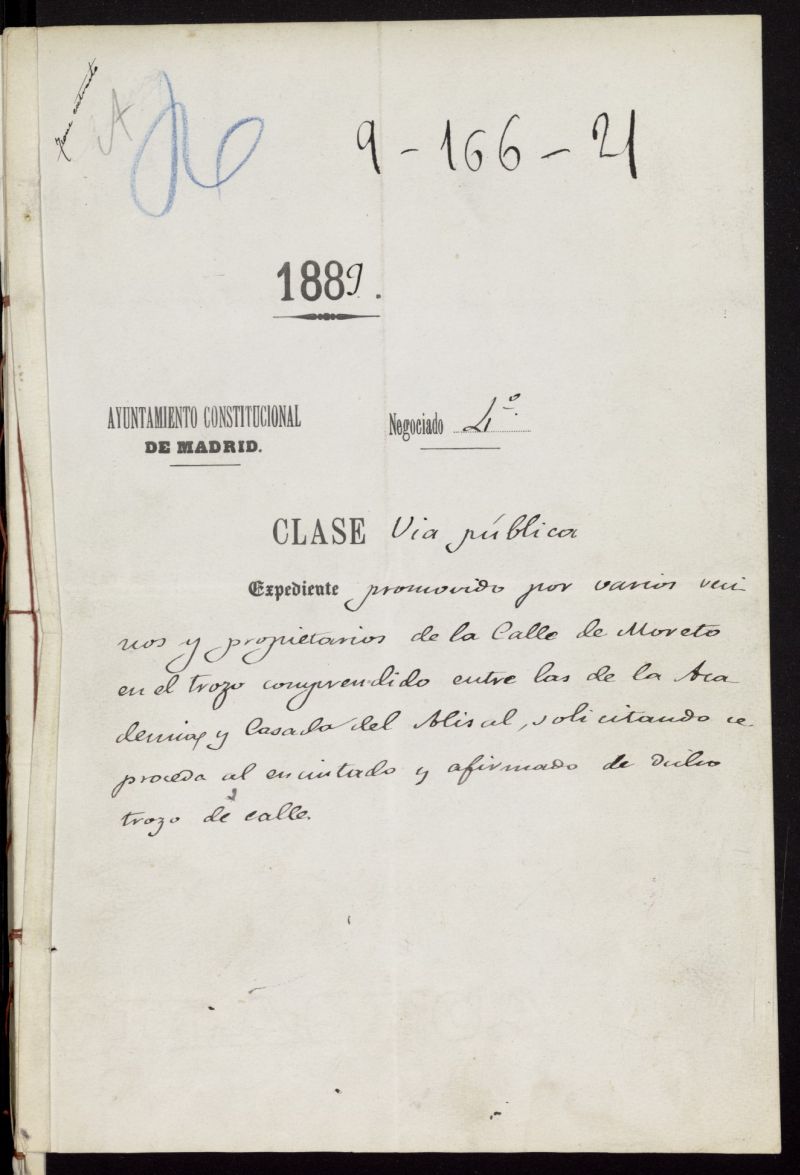 9-166-21
1889.
AYUNTAMIENTO CONSTITUCIONAL
DE MADRID.
Negociado 4º.
CLASE Via pública
Expediente promovido por varios veci
nos y propietarios de la Calle de Moreto
en el trozo comprendido entre las de la Aca
demia y Casado del Alisal, solicitando se
proceda al encintado y afirmado de dicho
trozo de calle.